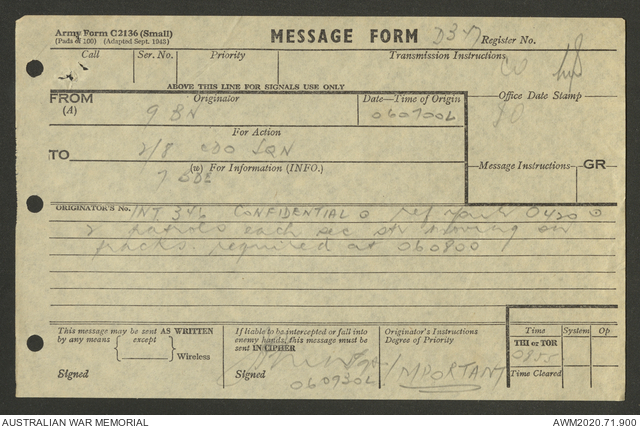 Army Form C2136 (Small)
(Pads of 100) (Adapted Sept. 1943)
MESSAGE FORM D347 Register No.
Call Ser. No. Priority Transmission Instructions
ABOVE THIS LINE FOR SIGNALS USE ONLY
FROM Originator Date—Time of Origin Office Date Stamp
(A) 9 BN 060700L
For Action
TO 2/8 CDO SQN
(W) For Information (INFO.) Message Instructions GR
7 BDE
ORIGINATOR'S No. INT 346 CONFIDENTIAL ref 0420
2 patrols each sec str moving on
tracks. required at 060800
This message may be sent AS WRITTEN
by any means except
Wireless
Signed
If liable to be intercepted or fall into
enemy hands, this message must be
sent IN CIPHER
Signed
060730L
Originator's Instructions
Degree of Priority
IMPORTANT
Time System Op
THI or TOR
0855
Time Cleared
AUSTRALIAN WAR MEMORIAL AWM2020.71.900